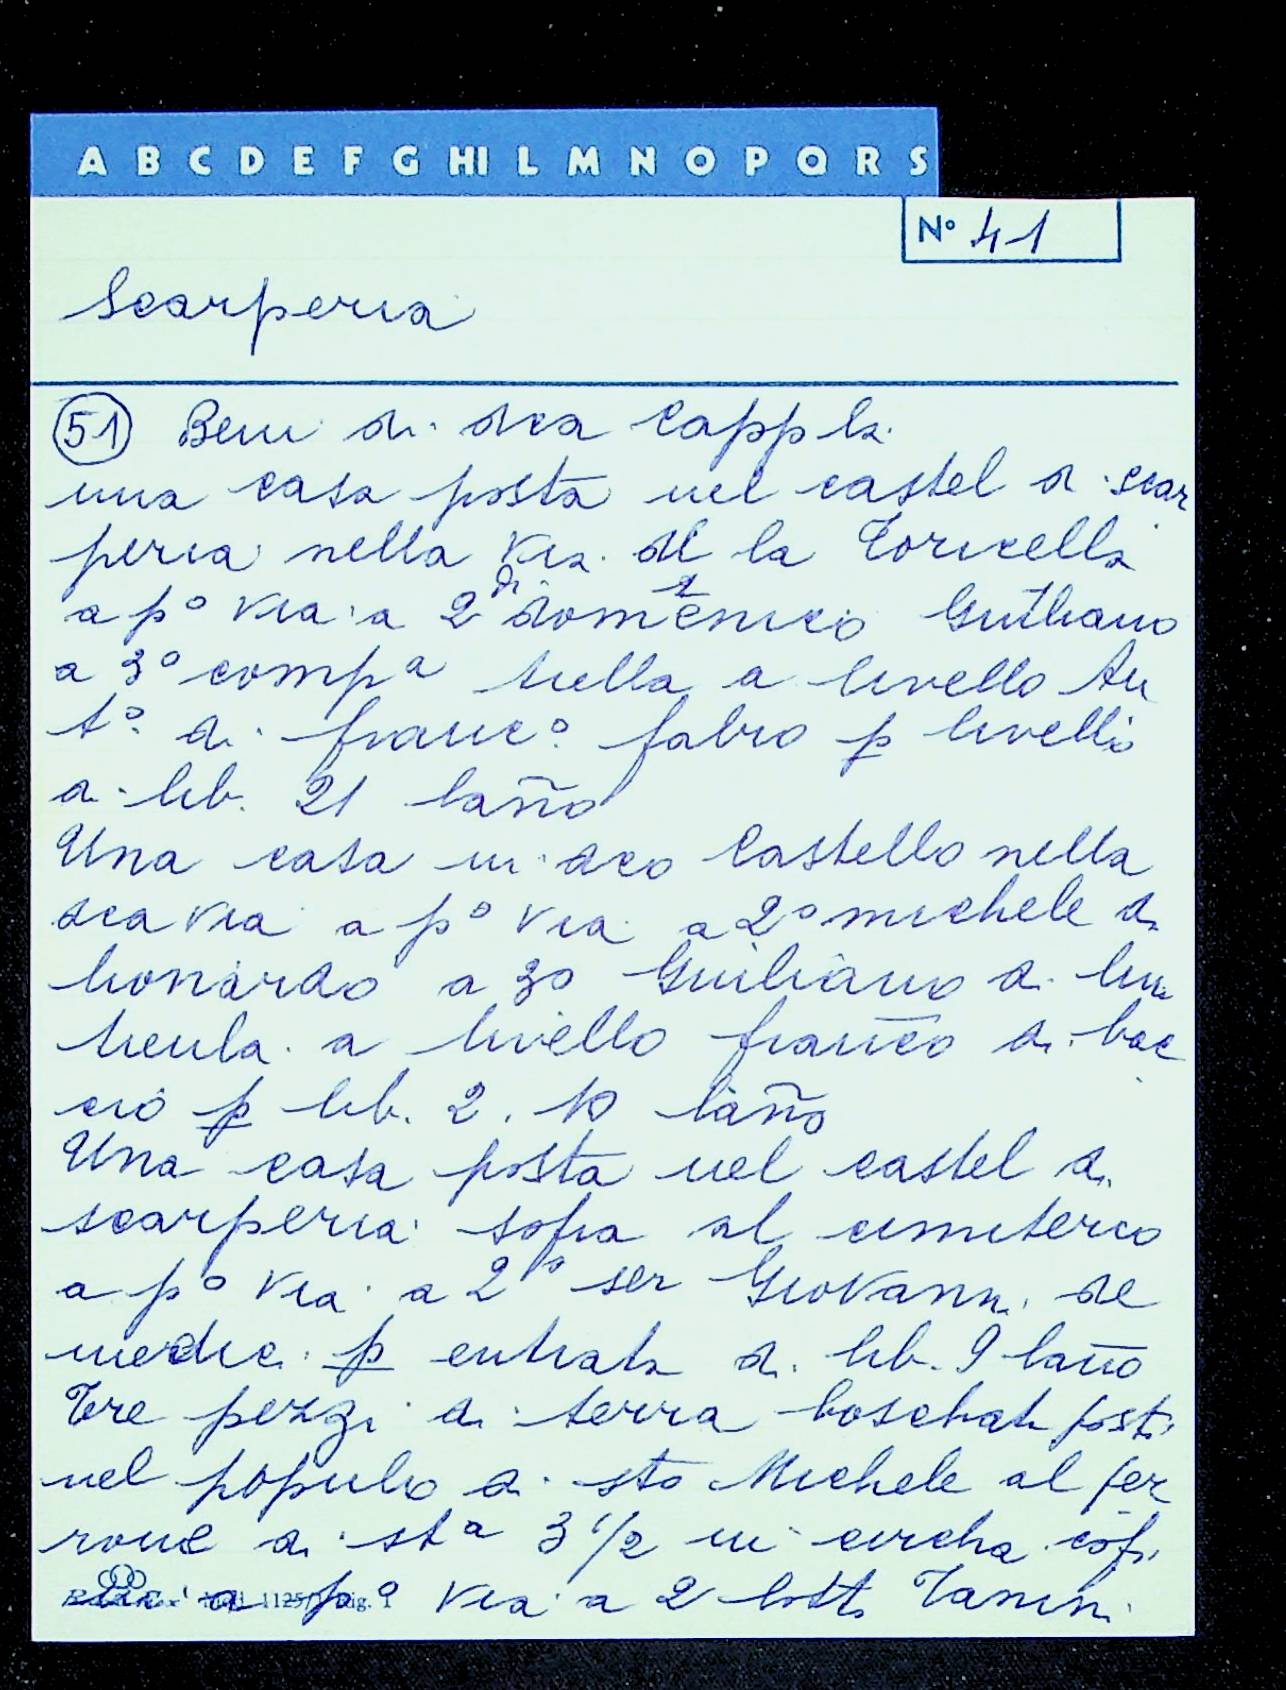 A B C D E F G HI L M N O P Q R S
N° 41
Scarperia
51 Beni di dca Cappla
una casa posta nel castel di scar
peria nella via del la Toricella
a p° via a 2 di domenico Giuliano
a 3° compa a livello An
t° di franc° fabro p livello
di lib. 21 laño
Una casa in dco Castello nella
dca via a p° via a 2° michele di
lionardo a 30 Giuliano di
a livello franco di bac
cio p lib. 2. 10 laño
Una casa posta nel castel di
scarperia sopra al cimiterio
a p° via a 2° ser Giovanni de
medici p entrata di lib. 9 laño
Tre pezzi di terra boschati posti
nel populo di sto Michele al fer
rone di sta 3 1/2 in circha cofi
a p° via a 2 Tanini